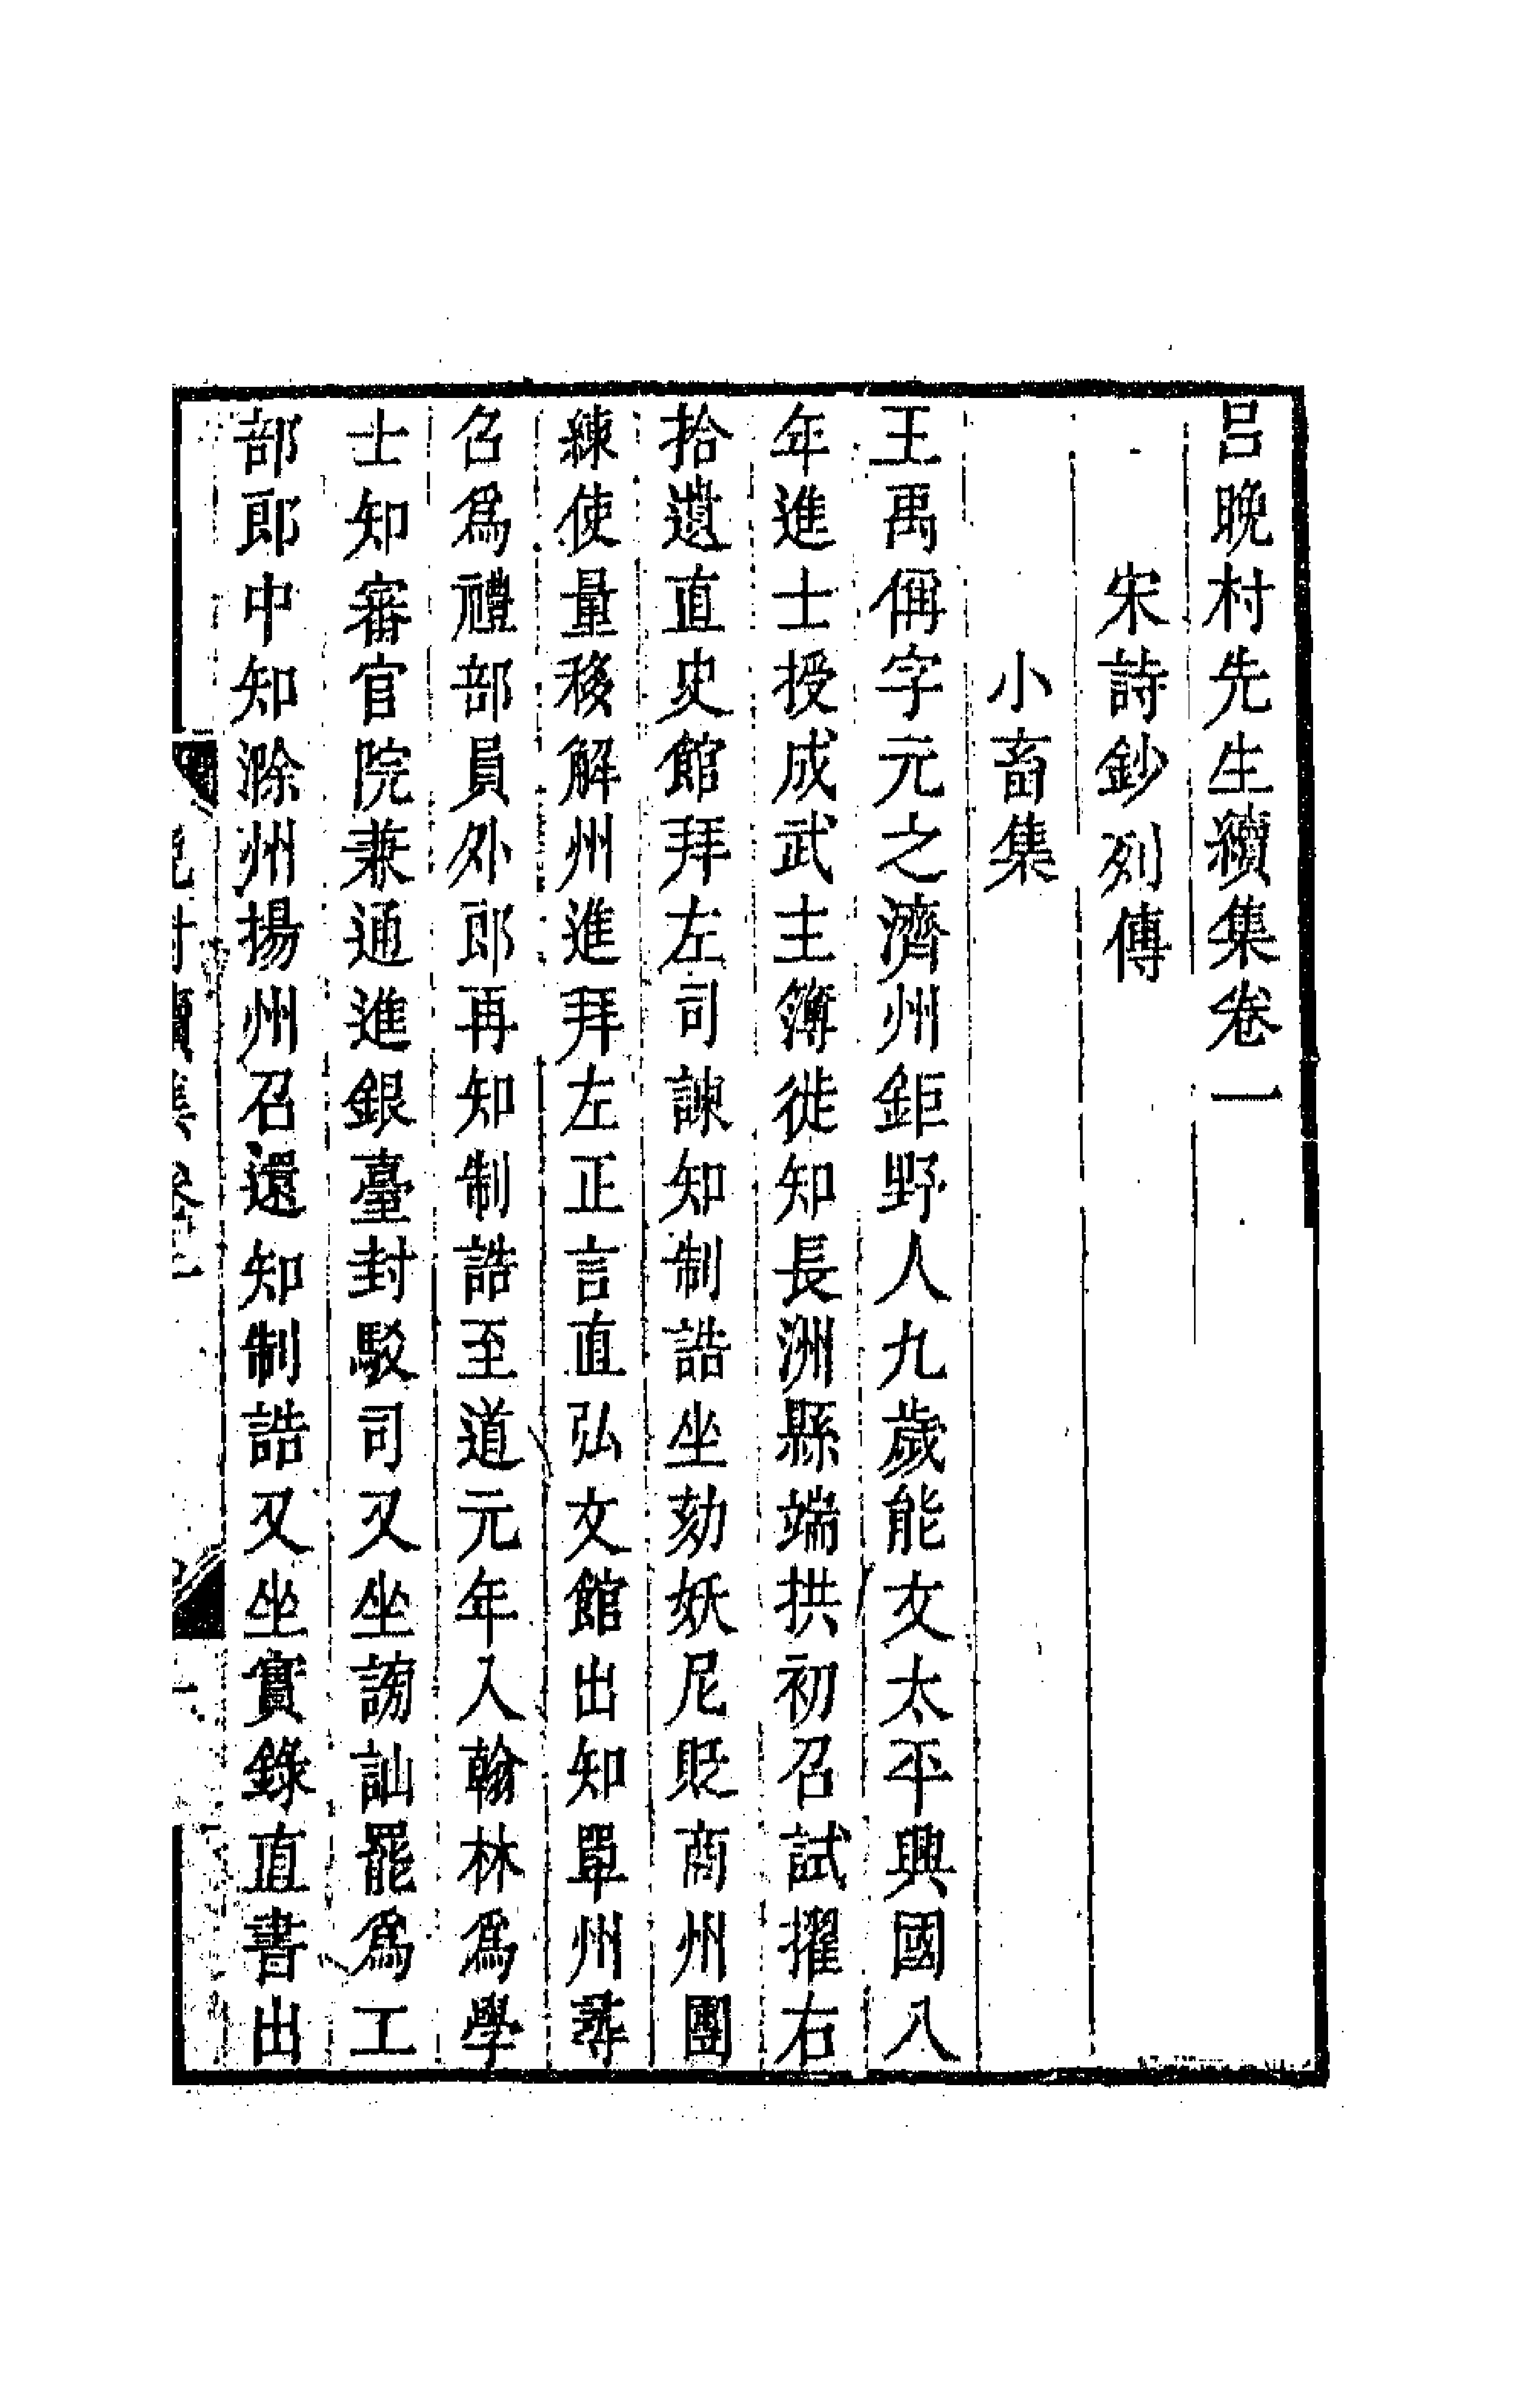 呂晚村先生續集卷一
宋詩鈔列傳
小畜集
王禹偁字元之濟州鉅野人九歲能文太平興國八
年進士授成武主簿徙知長洲縣端拱初召試擢右
拾遺直史館拜左司諫知制誥坐劾妖尼貶商州團
練使量移解州進拜左正言直弘文館出知單州尋
召爲禮部員外郎再知制誥至道元年入翰林爲學
士知審官院兼通進銀臺封駁司又坐謗訕罷爲工
部郎中知滁州揚州召還知制誥又坐實錄直書出